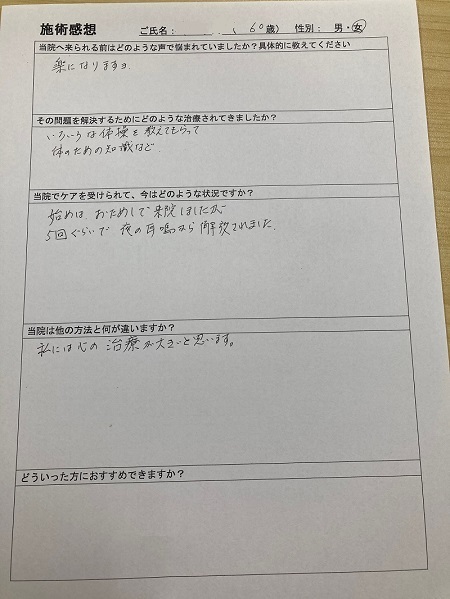 施術感想 ご氏名： （ 60 歳） 性別： 男・女
当院へ来られる前はどのような声で悩まれていましたか？具体的に教えてください
楽になりますヨ
その問題を解決するためにどのような治療されてきましたか？
いろいろな体操を教えてもらって
体のための知識など.
当院でケアを受けられて、今はどのような状況ですか？
始めは、おためしで来院しましたが
5回ぐらいで 夜の耳鳴から解放されました.
当院は他の方法と何が違いますか？
私には心の治療が大きいと思います。
どういった方におすすめできますか？